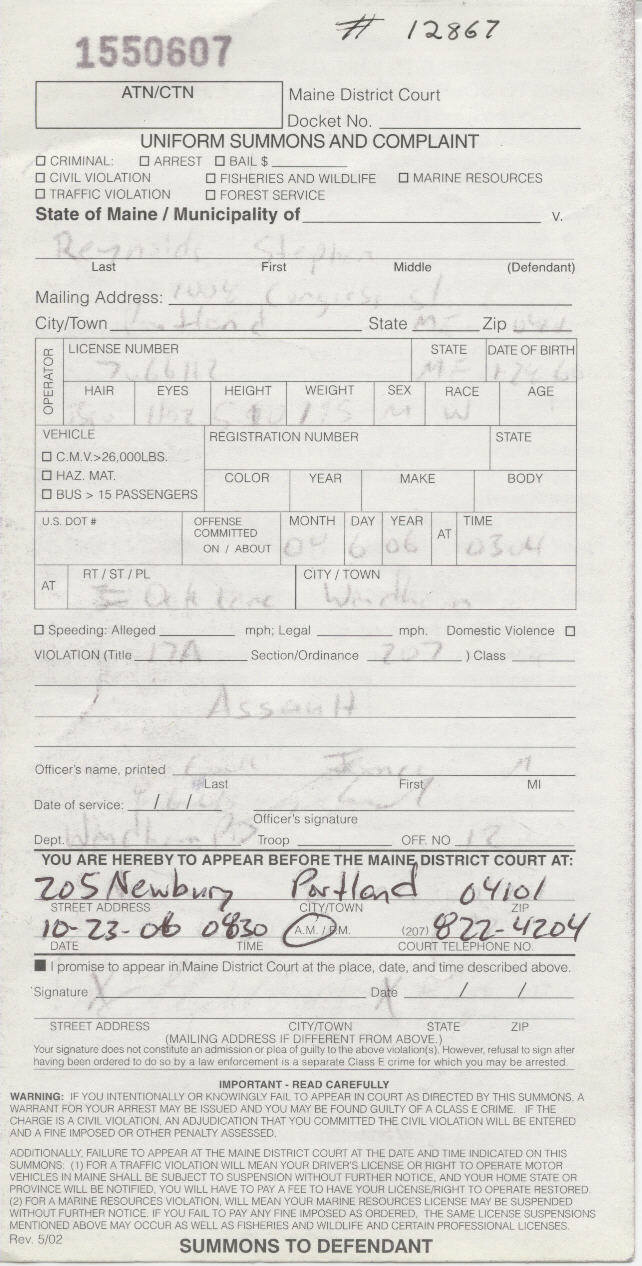 # 12867
1550607
ATN/CTN
Maine District Court
Docket No.
UNIFORM SUMMONS AND COMPLAINT
☐ CRIMINAL: ☐ ARREST ☐ BAIL $
☐ CIVIL VIOLATION ☐ FISHERIES AND WILDLIFE ☐ MARINE RESOURCES
☐ TRAFFIC VIOLATION ☐ FOREST SERVICE
State of Maine / Municipality of V.
Reynolds Stephen
Last First Middle (Defendant)
Mailing Address: Congress St
City/Town Portland State ME Zip
OPERATOR
LICENSE NUMBER STATE DATE OF BIRTH
ME
HAIR EYES HEIGHT WEIGHT SEX RACE AGE
M W
VEHICLE REGISTRATION NUMBER STATE
☐ C.M.V.>26,000LBS.
☐ HAZ. MAT. COLOR YEAR MAKE BODY
☐ BUS > 15 PASSENGERS
U.S. DOT # OFFENSE COMMITTED ON / ABOUT MONTH DAY YEAR AT TIME
04 6 06 0304
AT RT / ST / PL CITY / TOWN
Windham
☐ Speeding: Alleged mph; Legal mph. Domestic Violence ☐
VIOLATION (Title 17A Section/Ordinance 207 ) Class
Assault
Officer's name, printed M
Last First MI
Date of service: / /
Officer's signature
Dept. Windham PD Troop OFF. NO 12
YOU ARE HEREBY TO APPEAR BEFORE THE MAINE DISTRICT COURT AT:
205 Newbury Portland 04101
STREET ADDRESS CITY/TOWN ZIP
10-23-06 0830 A.M. / P.M. (207) 822-4204
DATE TIME COURT TELEPHONE NO.
■ I promise to appear in Maine District Court at the place, date, and time described above.
Signature X Date X / /
STREET ADDRESS CITY/TOWN STATE ZIP
(MAILING ADDRESS IF DIFFERENT FROM ABOVE.)
Your signature does not constitute an admission or plea of guilty to the above violation(s). However, refusal to sign after
having been ordered to do so by a law enforcement is a separate Class E crime for which you may be arrested.
IMPORTANT - READ CAREFULLY
WARNING: IF YOU INTENTIONALLY OR KNOWINGLY FAIL TO APPEAR IN COURT AS DIRECTED BY THIS SUMMONS, A
WARRANT FOR YOUR ARREST MAY BE ISSUED AND YOU MAY BE FOUND GUILTY OF A CLASS E CRIME. IF THE
CHARGE IS A CIVIL VIOLATION, AN ADJUDICATION THAT YOU COMMITTED THE CIVIL VIOLATION WILL BE ENTERED
AND A FINE IMPOSED OR OTHER PENALTY ASSESSED.
ADDITIONALLY, FAILURE TO APPEAR AT THE MAINE DISTRICT COURT AT THE DATE AND TIME INDICATED ON THIS
SUMMONS: (1) FOR A TRAFFIC VIOLATION WILL MEAN YOUR DRIVER'S LICENSE OR RIGHT TO OPERATE MOTOR
VEHICLES IN MAINE SHALL BE SUBJECT TO SUSPENSION WITHOUT FURTHER NOTICE, AND YOUR HOME STATE OR
PROVINCE WILL BE NOTIFIED, YOU WILL HAVE TO PAY A FEE TO HAVE YOUR LICENSE/RIGHT TO OPERATE RESTORED.
(2) FOR A MARINE RESOURCES VIOLATION, WILL MEAN YOUR MARINE RESOURCES LICENSE MAY BE SUSPENDED
WITHOUT FURTHER NOTICE. IF YOU FAIL TO PAY ANY FINE IMPOSED AS ORDERED, THE SAME LICENSE SUSPENSIONS
MENTIONED ABOVE MAY OCCUR AS WELL AS FISHERIES AND WILDLIFE AND CERTAIN PROFESSIONAL LICENSES.
Rev. 5/02
SUMMONS TO DEFENDANT